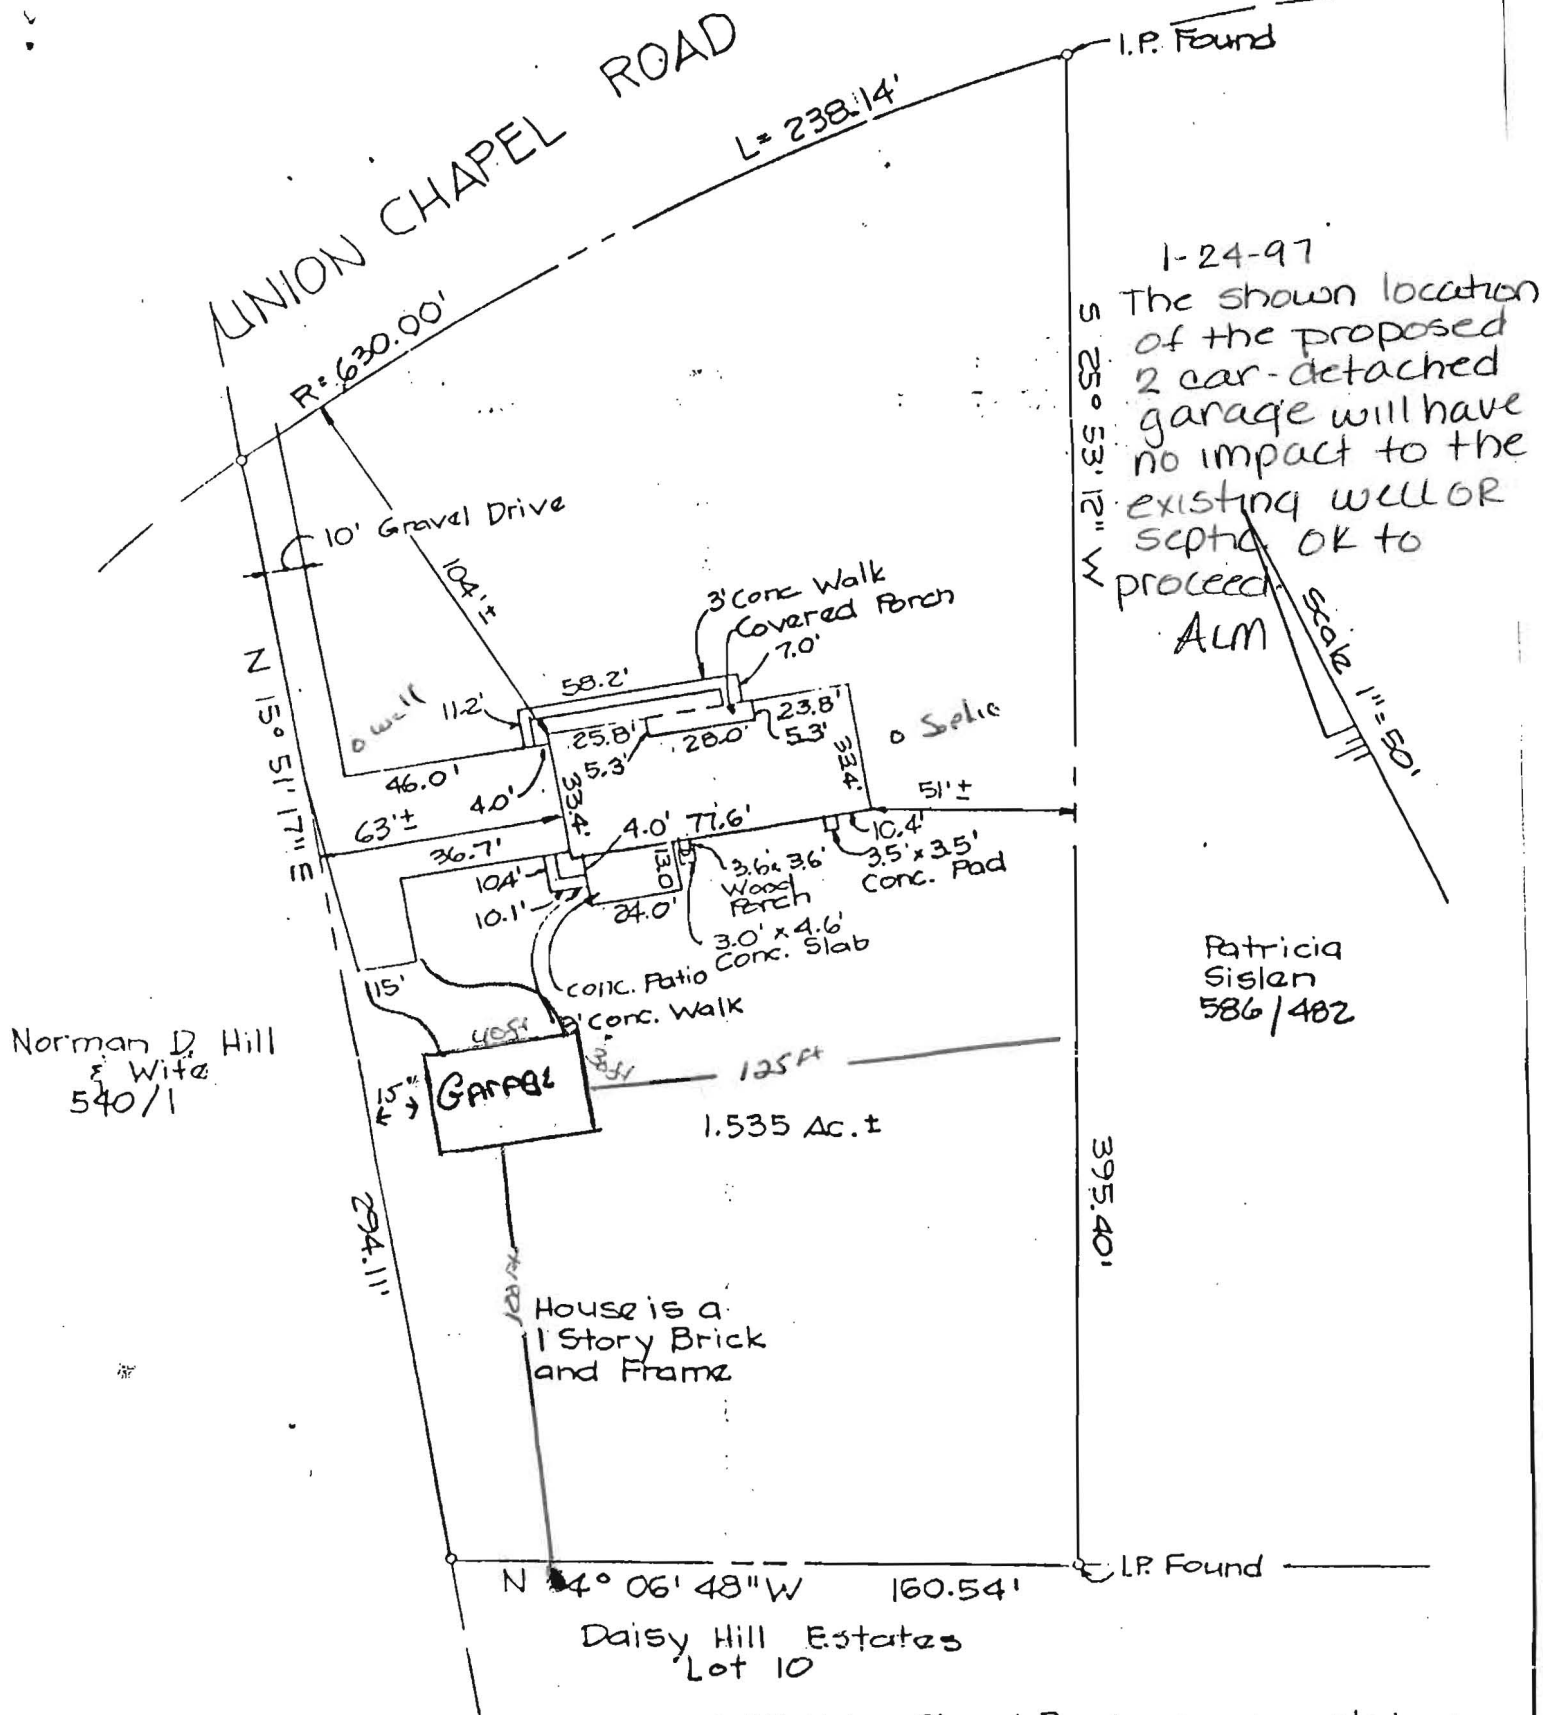 UNION CHAPEL ROAD
I.P. Found
L= 238.14'
R= 630.00'
1-24-97
The shown location
of the proposed
2 car-detached
garage will have
no impact to the
existing well OR
septic OK to
proceed.
ALM
S 25° 53' 12" W
Scale 1"=50'
10' Gravel Drive
104'±
3' Conc Walk
Covered Porch
7.0'
58.2'
11.2'
well
N 15° 51' 17" E
23.8'
25.8'
28.0'
5.3'
5.3'
33.4'
33.4'
Septic
46.0'
4.0'
63'±
51'±
36.7'
4.0'
77.6'
10.4'
3.5' x 3.5'
Conc. Pad
10.4'
13.0
3.6' x 3.6'
Wood
Porch
10.1'
24.0'
3.0' x 4.6'
Conc. Slab
Conc. Patio
3' Conc. Walk
15'
Patricia
Sislen
586/482
Norman D Hill
& Wife
540/1
40ft
30ft
Garage
15"
125 ft
1.535 Ac.±
294.11'
395.40'
House is a
1 Story Brick
and Frame
I.P. Found
N 4° 06' 48" W 160.54'
Daisy Hill Estates
Lot 10